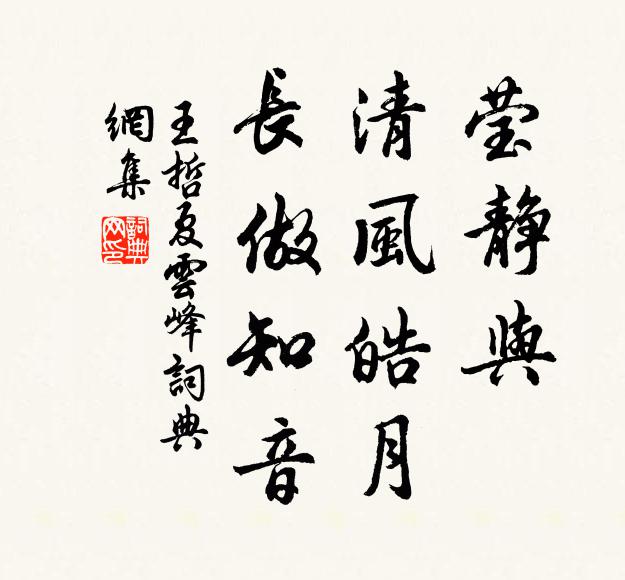 莹靜與
清風皓月
長做知音
王哲夏雲峰詞典
網集
詞典
网印